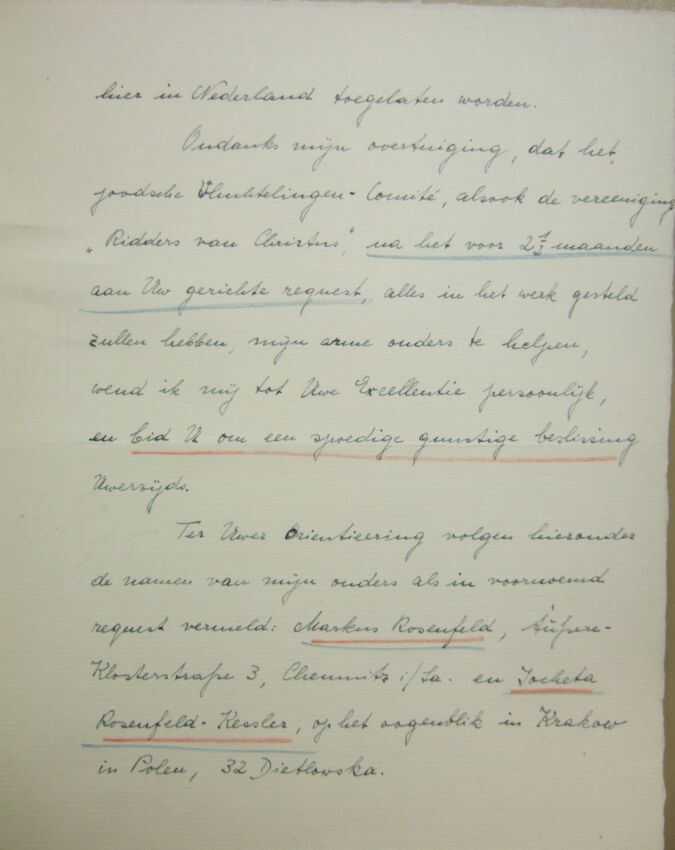 hier in Nederland toegelaten worden.
Ondanks mijn overtuiging, dat het
joodsche Vluchtelingen-Comité, alsook de vereeniging
„Ridders van Christus", na het voor 2½ maanden
aan Uw gerichte request, alles in het werk gesteld
zullen hebben, mijn arme ouders te helpen,
wend ik mij tot Uwe Excellentie persoonlijk,
en bid U om een spoedige gunstige beslissing
Uwerzijds.
Ter Uwer Orienteering volgen hieronder
de namen van mijn ouders als in voornoemd
request vermeld: Markus Rosenfeld, Äußere-
Klosterstraße 3, Chemnitz i/Sa. en Jocheta
Rosenfeld-Kessler, op het oogenblik in Krakow
in Polen, 32 Dietlowska.